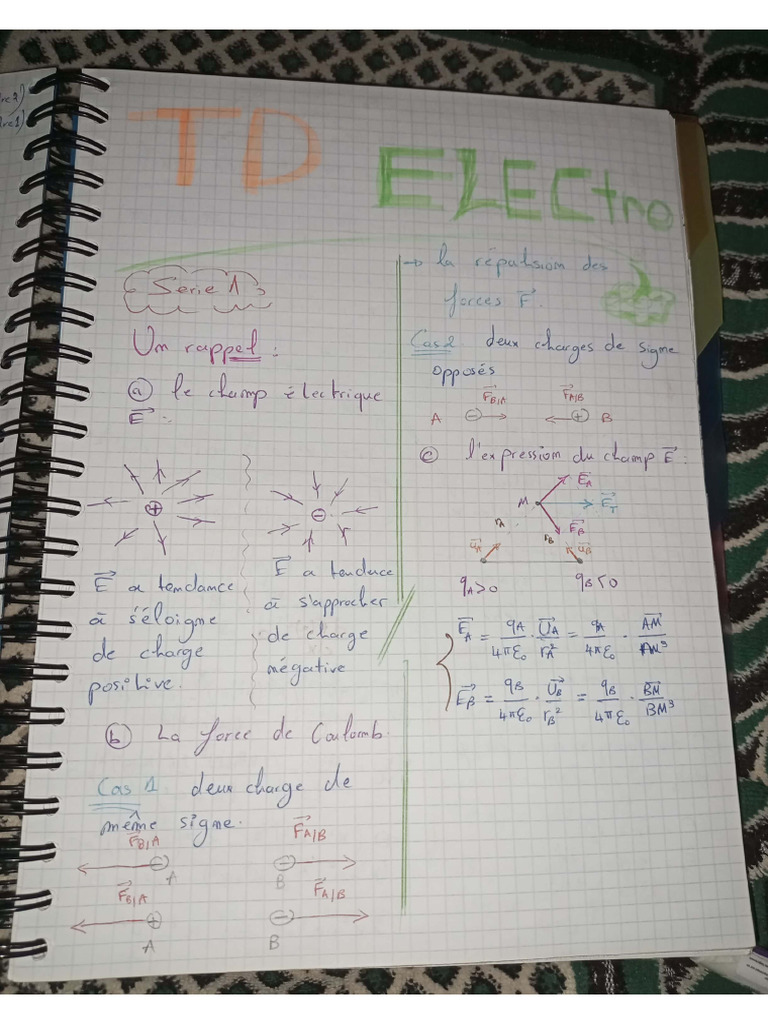 rc2)
rc1)
TD
ELECtro
Serie 1
Un rappel :
ⓐ le champ électrique
E⃗ :
⊕
⊖
E⃗ a tendance
à s'éloigne
de charge
positive.
E⃗ a tendace
à s'approcher
de charge
négative.
ⓑ La force de Coulomb.
Cas 1 deux charge de
même signe.
F⃗B/A F⃗A/B
⊖ ⊖
A B
F⃗B/A F⃗A/B
⊕ ⊖
A B
→ la répulsion des
forces F⃗.
Cas 2 deux charges de signe
opposés
F⃗B/A F⃗A/B
A ⊖ ⊕ B
ⓒ l'expression du champ E⃗ :
E⃗A
M E⃗T
rA rB E⃗B
u⃗A u⃗B
qA>0 qB<0
E⃗A = qA/4πε₀ · U⃗A/rA² = qA/4πε₀ · AM⃗/AM³
E⃗B = qB/4πε₀ · U⃗B/rB² = qB/4πε₀ · BM⃗/BM³